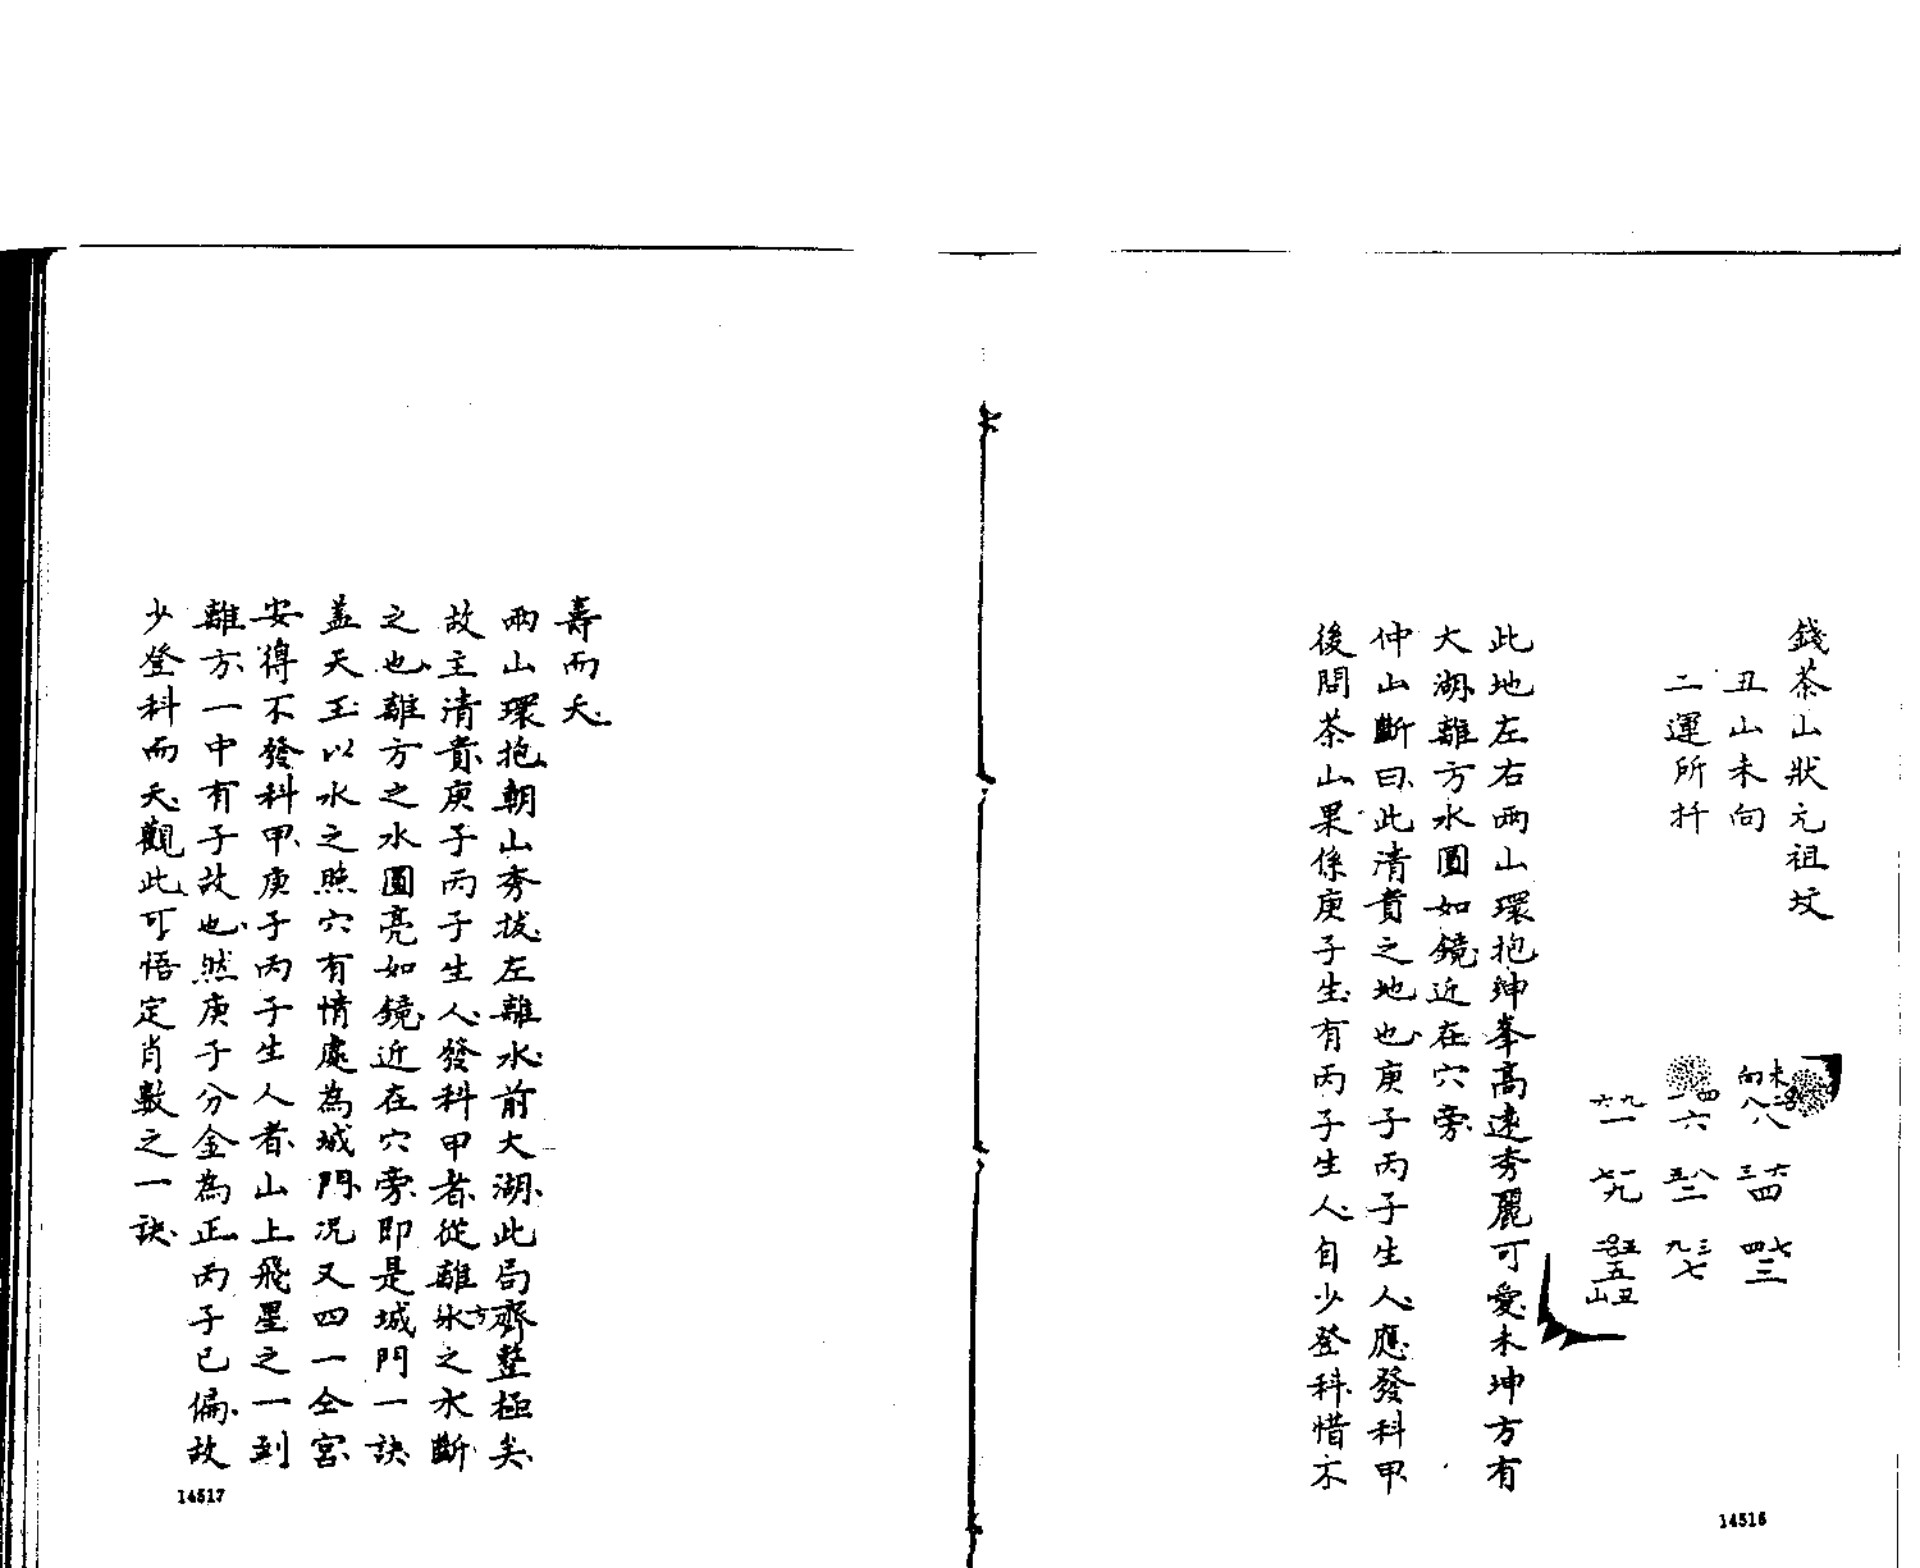 錢茶山狀元祖坟
丑山未向
二運所扦
未向
八二
八
三六
四
四七
三
一四
六
五八
二
九三
七
六九
一
七一
九
二五
五
丑山
此地左右兩山環抱坤峯高遠秀麗可愛、未坤方有
大湖、離方水圓如鏡、近在穴旁、
仲山斷曰、此清貴之地也、庚子丙子生人、應發科甲、
後問茶山、果係庚子生、有丙子生人、自少登科、惜不
壽而夭、
兩山環抱、朝山秀拔、左離水、前大湖、此局齊整極矣、
故主清貴、庚子丙子生人、發科甲者、從離方水之水斷、
之也、離方之水圓亮如鏡、近在穴旁、即是城門一訣、
蓋天玉以水之照穴有情處為城門、況又四一仝宮、
安得不發科甲、庚子丙子生人者、山上飛星之一到
離方、一中有子故也、然庚子分金為正、丙子已偏、故
少登科而夭、觀此、可悟定肖數之一訣、
14517
14516